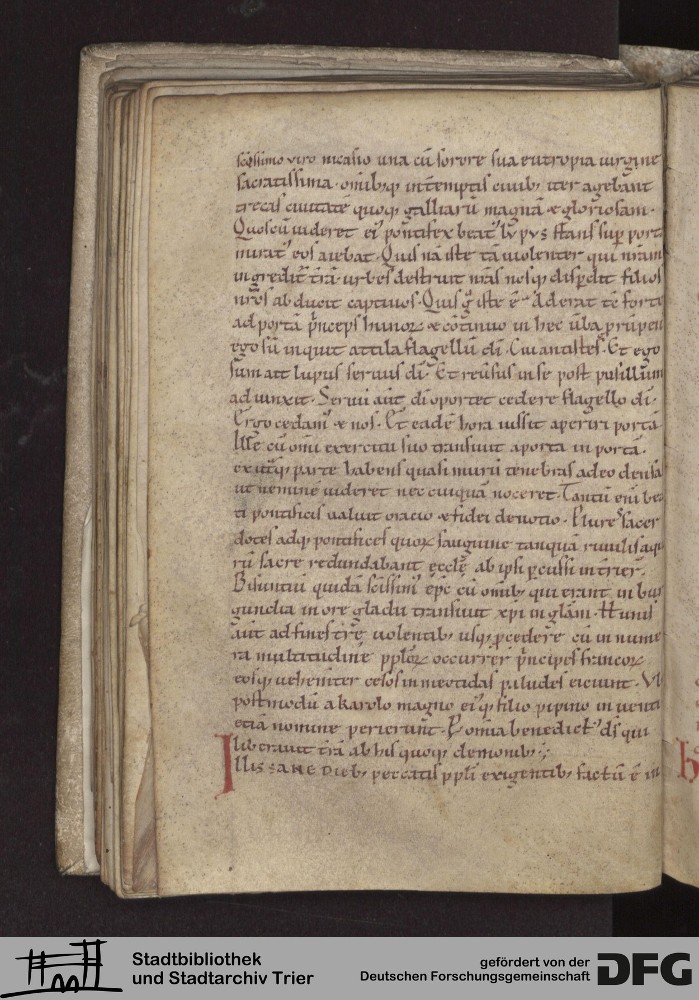 scīssimo viro nicasio una cū sorore sua eutropia uirgine
sacratissima. omib; q; intemptis ciuib; iter agebant
trecas ciuitatē quoq; galliarū magnā & gloriosam.
Quos cū uideret ei' pontifex beat' lupus stans sup portā
murat' eos aiebat. Quis nā iste tā uiolenter qui nrām
ingredit' trā urbes destruit nrās nosq; disperdit filios
nrōs abducit captiuos. Quis g iste ē. Aderat tē forte
ad portā p̄nceps hunoꝝ & cōtinuo in hec ūba prūpens
ego sū inquit attila flagellū dī. Cui antistes. Et ego
sum ait lupus seruus dī. Et reuersus in se post pusillum
adiunxit. Serui aūt dī oportet cedere flagello dī.
Ergo cedam' & nos. Et eadē hora iussit aperiri portā
Ille cū omi exercitu suo transiuit a porta in portā.
ex utraq; parte habens quasi murū tenebras adeo densā
ut neminē uideret nec cuiquā noceret. Tantū eni bea
ti pontificis ualuit oracio & fidei deuotio. Plures sacer
dotes adq; pontifices quoꝝ sanguine tanquā riuulis aqua
rū sacre redundabant ecclē ab ipsi pcussi int̄rier̄.
Bisuntiū quidā scīssim' epc̄ cū omib; qui erant in bur
gundia in ore gladii transiuit xpi in glām. Hunis
aūt ad finestrē uolentib; usq; pcedere cū in nume
ra multitudine pploꝝ occurrer̄ p̄ncipes francoꝝ
eosq; uehemter cesos in meotidas paludes eiciunt. Vl
postmodū a karolo magno ei'q; filio pipino inuenti
etiā nomine perierunt. P omia benedict' ds̄ qui
liberauit trā ab his quoq; demonib;
Illis sane dieb; peccatis ppli exigentib; factū ē in
Stadtbibliothek
und Stadtarchiv Trier
gefördert von der
Deutschen Forschungsgemeinschaft
DFG